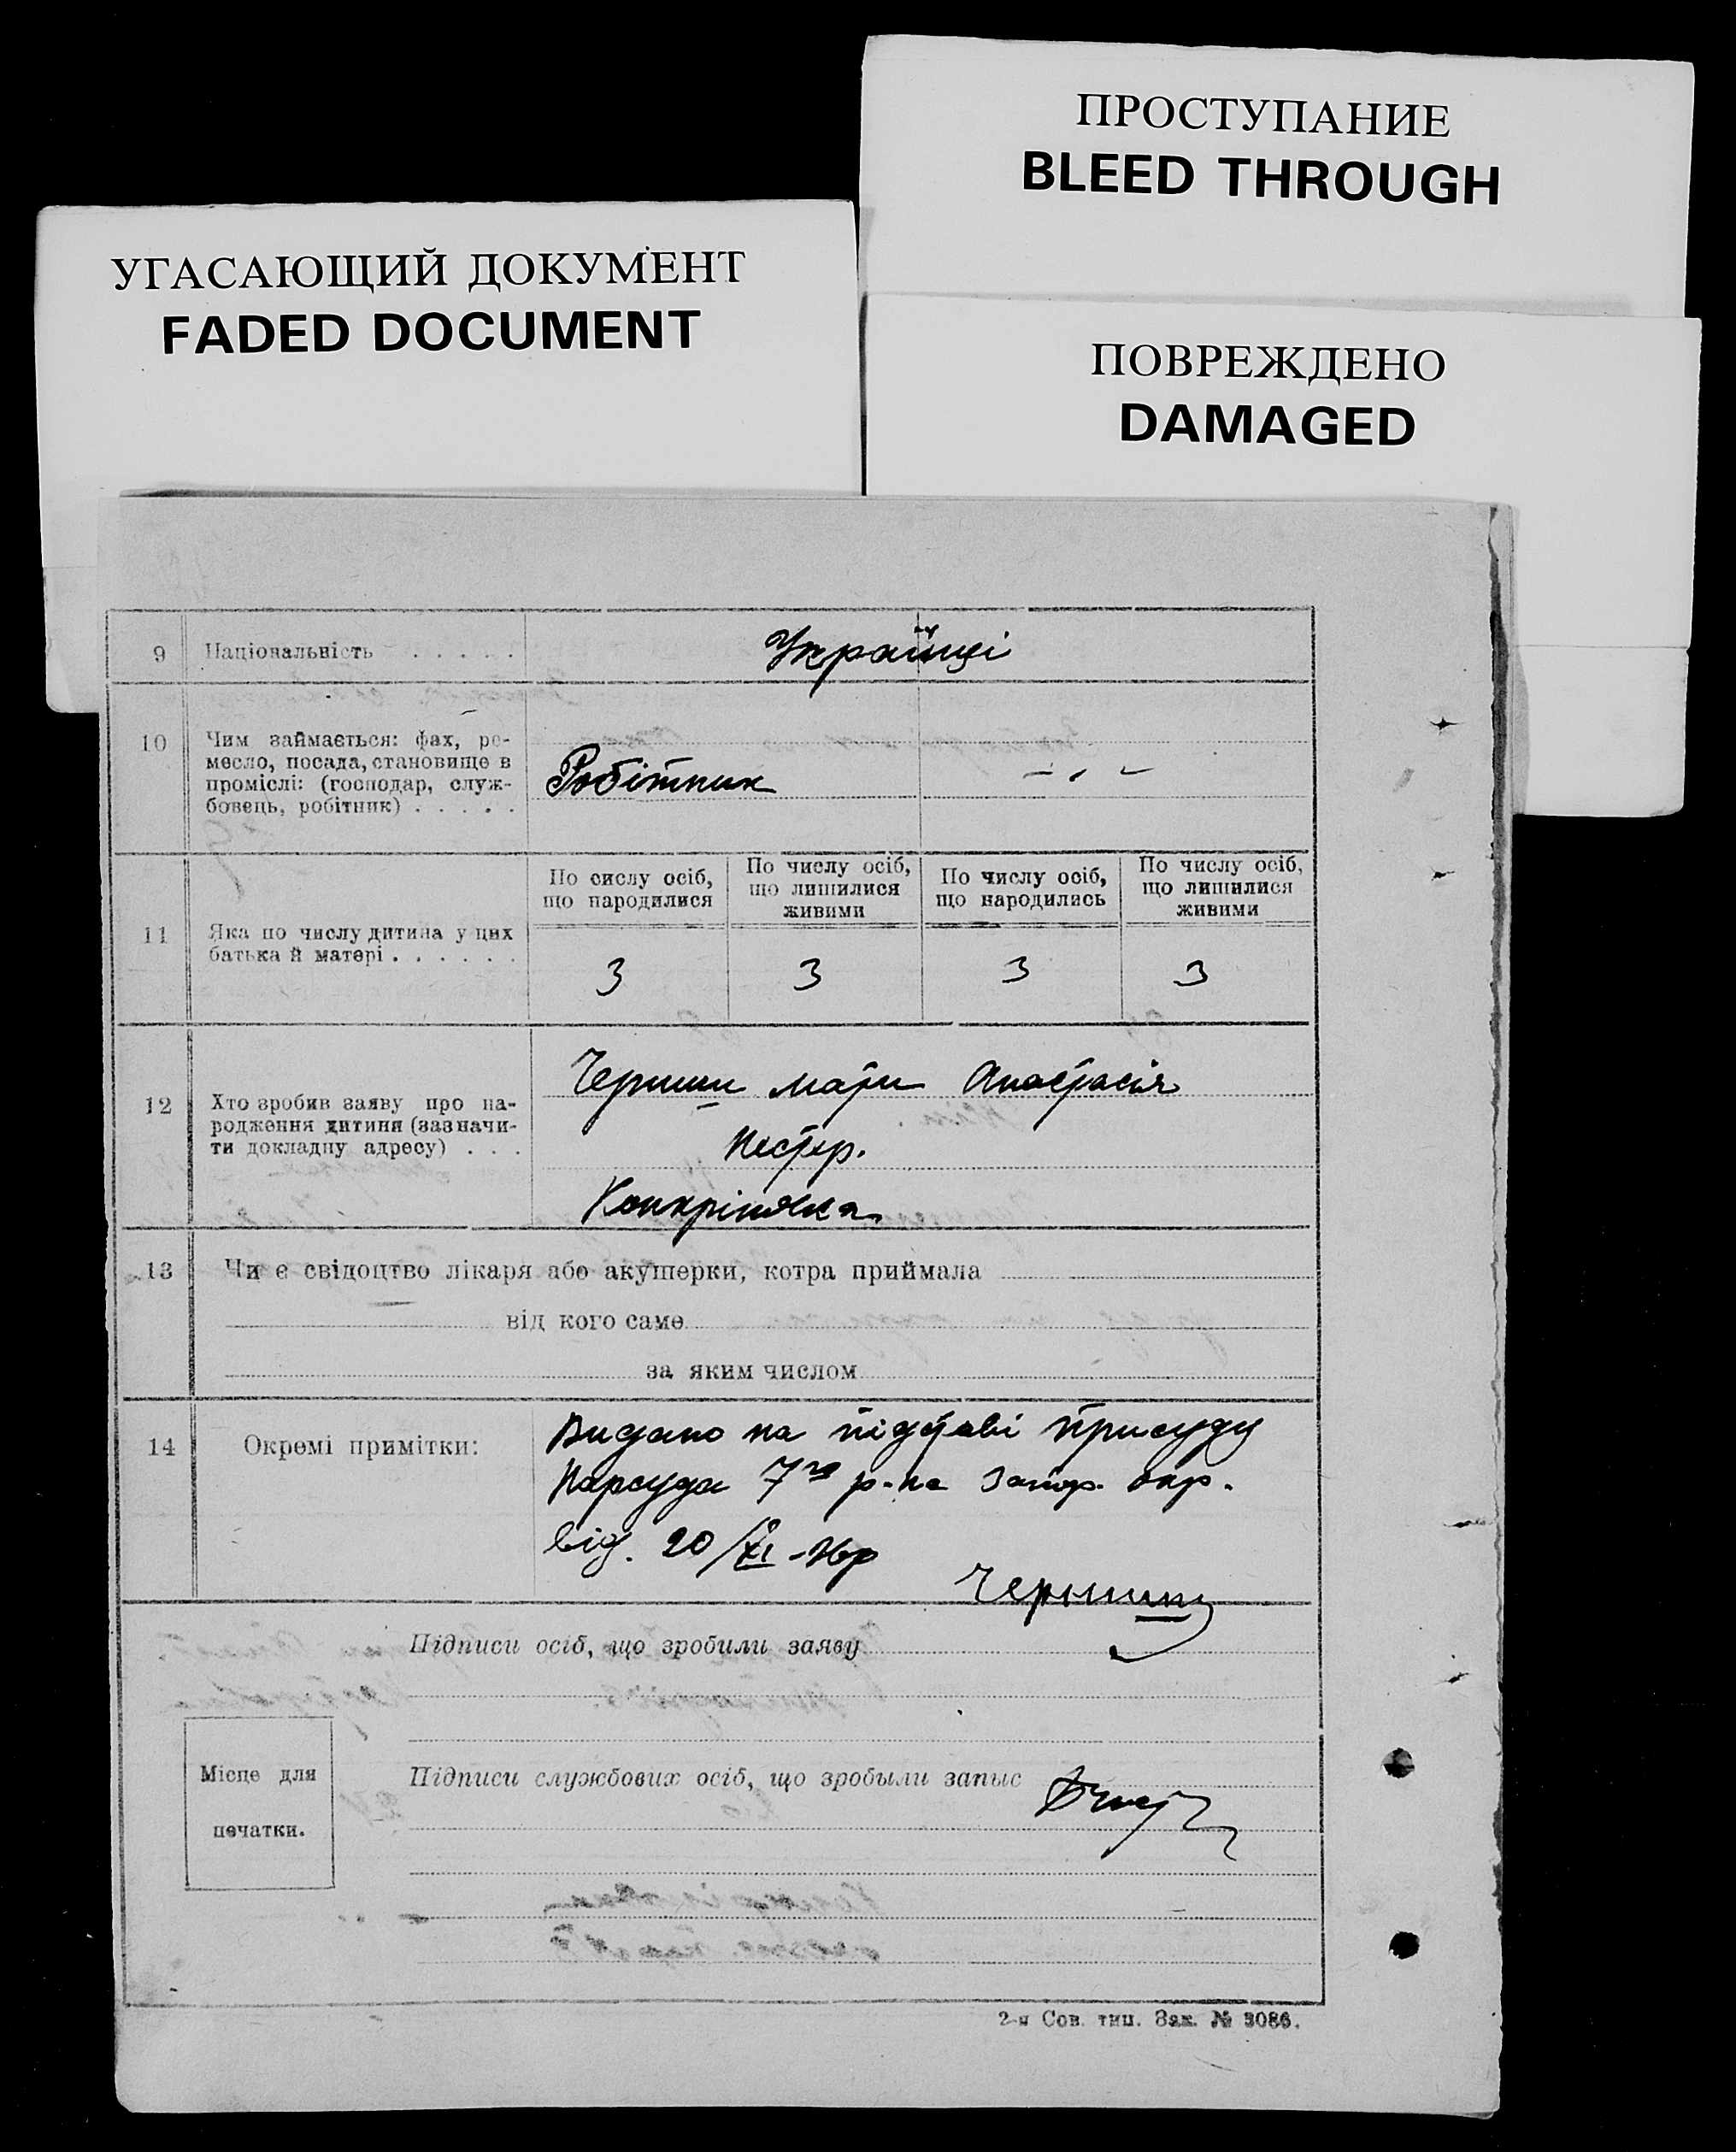 ПРОСТУПАНИЕ
BLEED THROUGH
УГАСАЮЩИЙ ДОКУМЕНТ
FADED DOCUMENT
ПОВРЕЖДЕНО
DAMAGED
9 Національність . . . . . Українці
10 Чим займається: фах, ре-
месло, посада, становище в
проміслі: (господар, служ-
бовець, робітник) . . . . .
Робітник - „ -
11 Яка по числу дитина у цих
батька й матері . . . . . .
По сислу осіб,
що народилися
По числу осіб,
що лишилися
живими
По числу осіб,
що народились
По числу осіб,
що лишилися
живими
3 3 3 3
12 Хто зробив заяву про на-
родження дитини (зазначи-
ти докладну адресу) . . .
мати Анастасія
Нестер.
13 Чи є свідоцтво лікаря або акушерки, котра приймала
від кого саме
за яким числом
14 Окремі примітки:
Видано на підставі присуду
Нарсуда 7го р-на Запор. окр.
від. 20/XI-
Підписи осіб, що зробили заяву
Місце для
печатки.
Підписи службових осіб, що зробыли запыс
2-я Сов. тип. Зак. № 3086.